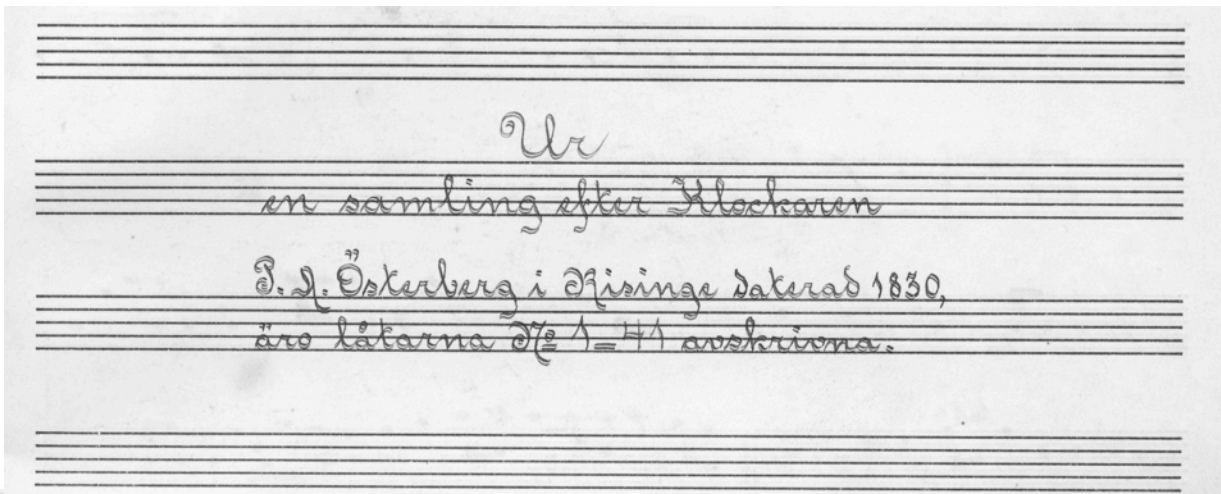 Ur
en samling efter Klockaren
P. A. Österberg i Risinge daterad 1830,
äro låtarna No 1–41 avskrivna.